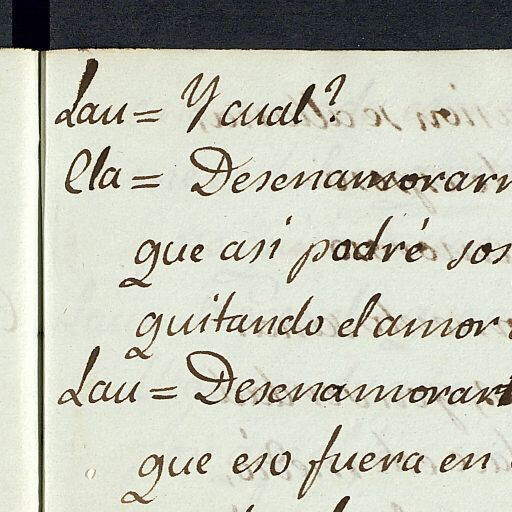 Lau = Y cual?
Cla = Desenamorarm
que asi podré sos
quitando el amor
Lau = Desenamorart
que eso fuera en